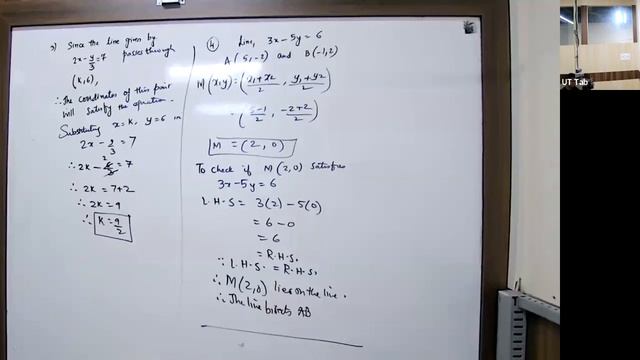 3) Since the line given by
2x - y/3 = 7 passes through
(K, 6),
∴ The coordinates of this point
will satisfy the equation.
Substituting x = K, y = 6 in
2x - y/3 = 7
∴ 2K - 6/3 = 7
∴ 2K = 7+2
∴ 2K = 9
∴ K = 9/2
4) Line, 3x - 5y = 6
A (5, -2) and B (-1, 2)
M (x, y) = (x1+x2/2 , y1+y2/2)
= (5-1/2 , -2+2/2)
M = (2, 0)
To check if M (2, 0) satisfies
3x - 5y = 6
L.H.S = 3(2) - 5(0)
= 6 - 0
= 6
= R.H.S.
∵ L.H.S. = R.H.S.
∴ M (2, 0) lies on the line.
∴ The line bisects AB
UT Tab